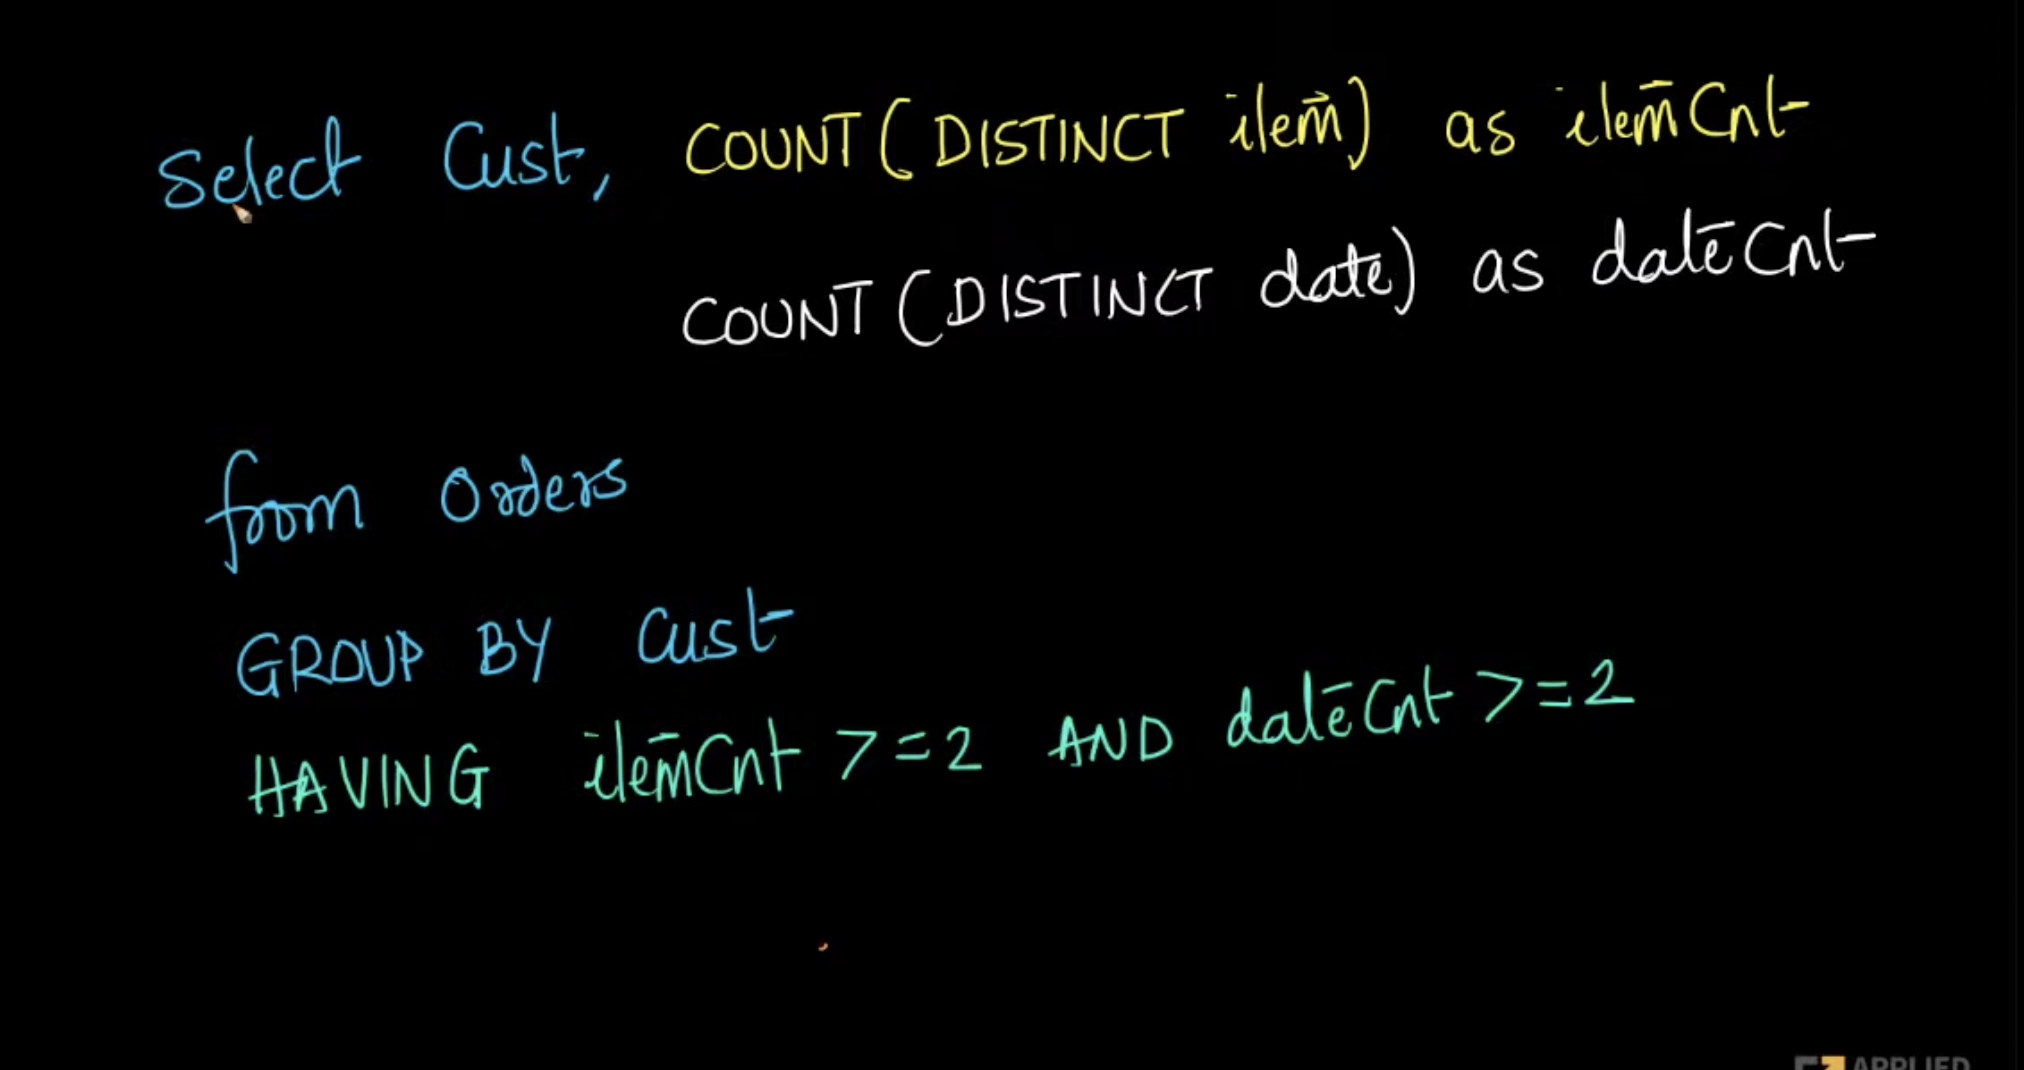 Select Cust, COUNT(DISTINCT item) as itemCnt
COUNT(DISTINCT date) as dateCnt
from Orders
GROUP BY Cust
HAVING itemCnt >=2 AND dateCnt >=2
APPLIED